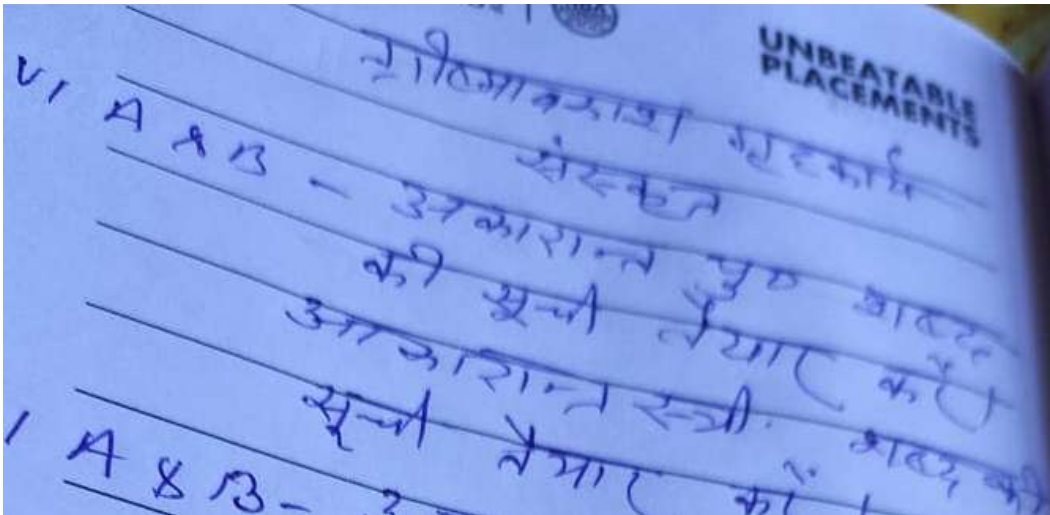 UNBEATABLE
PLACEMENTS
ग्रीष्मावकाश गृहकार्य
संस्कृत
VI A & B - अकारान्त पु० शब्द
की सूची तैयार करें।
आकारान्त स्त्री. शब्द की
सूची तैयार करें।
I A & B -